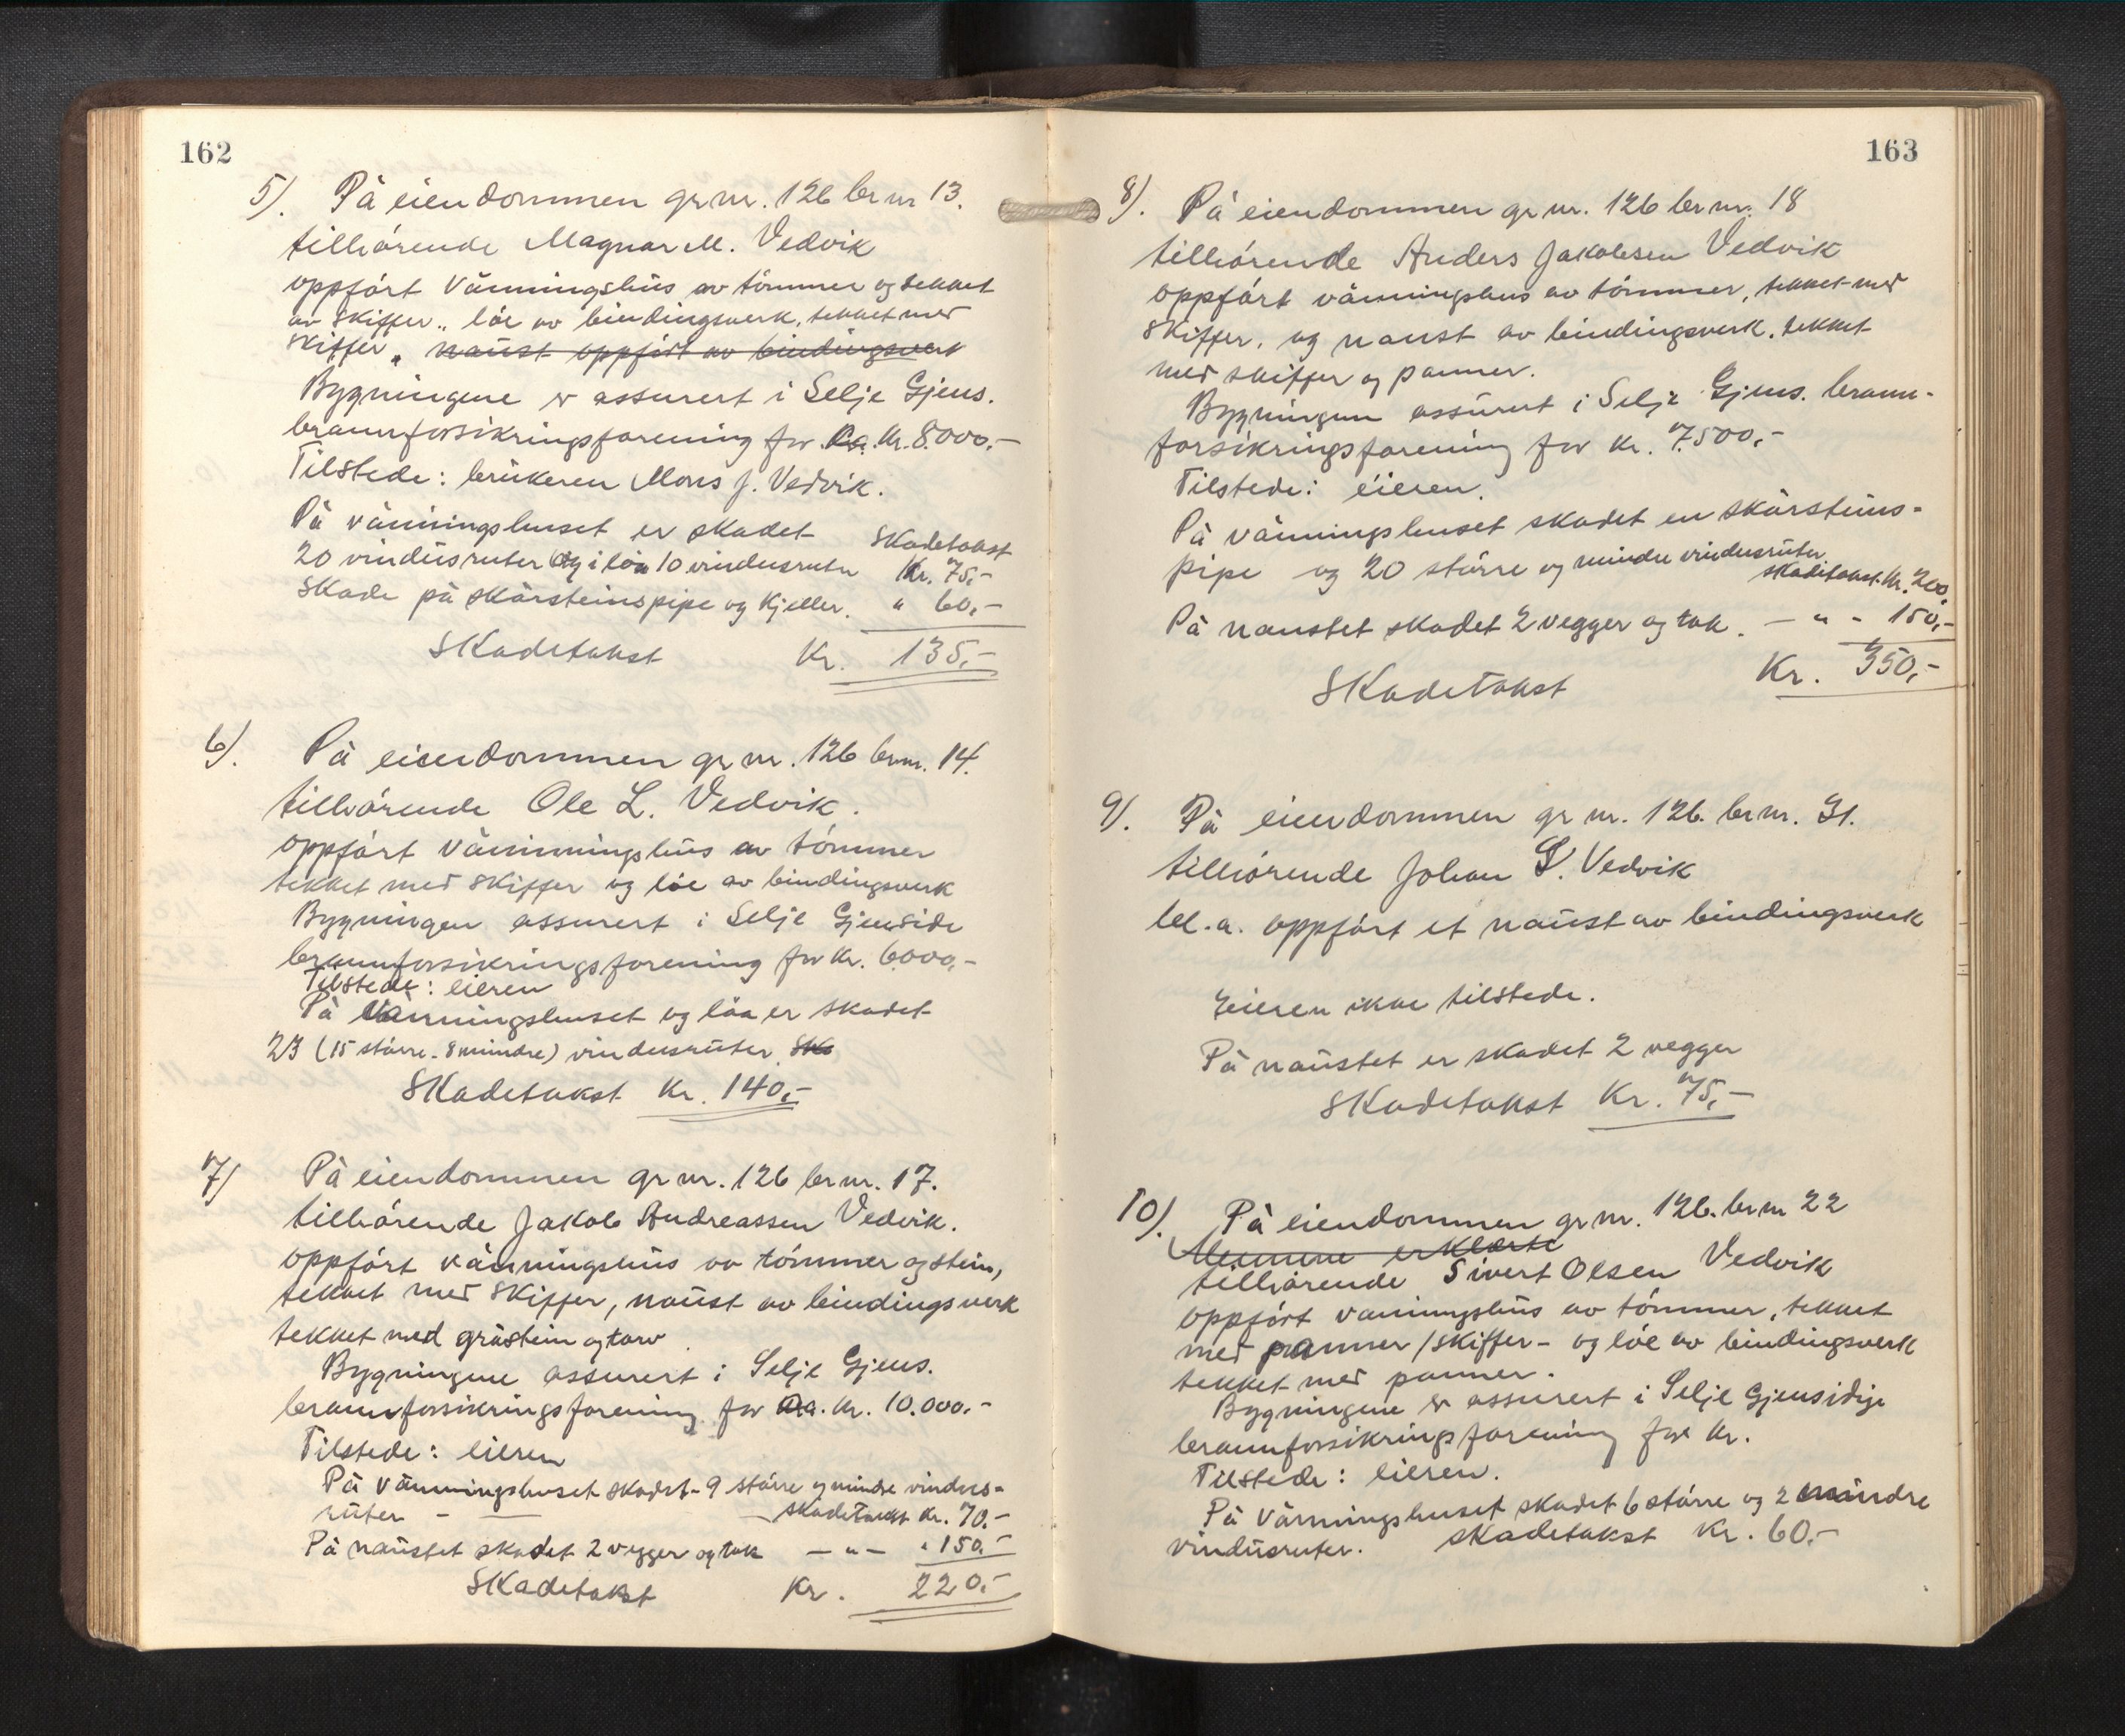 162
5). På eiendommen gr nr. 126 br nr 13.
tilhørende Magnar M. Vedvik
oppført våningshus av tømmer og tekket
av skiffer, løe av bindingsverk, tekket med
skiffer. naust oppført av bindingsverk
Bygningene er assurert i Selje Gjens.
brannforsikringsforening for Ca. Kr. 8.000,-
Tilstede: brukeren Mons J. Vedvik.
På våningshuset er skadet Skadetakst
20 vindusruter og i løa 10 vindusruter Kr. 75,-
Skade på skorsteinspipe og kjeller. " 60,-
Skadetakst Kr. 135,-
6). På eiendommen gr nr. 126 br nr. 14.
tilhørende Ole L. Vedvik.
oppført våningshus av tømmer
tekket med skiffer og løe av bindingsverk
Bygningen assurert i Selje Gjenside
brannforsikringsforening for Kr. 6000,-
Tilstede: eieren
På våningshuset og løa er skadet
23 (15 større - 8 mindre) vindusruter. Ska
Skadetakst Kr. 140,-
7) På eiendommen gr nr. 126 br nr. 17.
tilhørende Jakob Andreassen Vedvik.
oppført våningshus av tømmer og stein,
tekket med skiffer, naust av bindingsverk
tekket med gråstein og torv.
Bygningene assurert i Selje Gjens.
brannforsikringsforening for Ca. Kr. 10.000.-
Tilstede: eieren
På våningshuset skadet - 9 større og mindre vindus-
ruter - — — skadetakst Kr. 70.-
På naustet skadet 2 vegger og tak — " — " 150.-
Skadetakst Kr. 220.-
163
8). På eiendommen gr nr. 126 br nr. 18
tilhørende Anders Jakobsen Vedvik
oppført våningshus av tømmer, tekket med
skiffer, og naust av bindingsverk, tekket
med skiffer og panner.
Bygningen assurert i Selje Gjens. brann-
forsikringsforening for Kr. 7.500,-
Tilstede: eieren.
På våningshuset skadet en skorsteins-
pipe og 20 større og mindre vindusruter
skadetakst Kr. 200,
På naustet skadet 2 vegger og tak. — " - 150,-
Skadetakst Kr. 350,-
9). På eiendommen gr nr. 126. br nr. 21.
tilhørende Johan S. Vedvik
bl.a. oppført et naust av bindingsverk
Eieren ikke tilstede.
På naustet er skadet 2 vegger
Skadetakst Kr. 75,-
10). På eiendommen gr nr. 126. br nr 22
erklærte
tilhørende Sivert Olsen Vedvik
oppført våningshus av tømmer, tekket
med panner/skiffer - og løe av bindingsverk
tekket med panner.
Bygningene er assurert i Selje Gjensidige
brannforsikringsforening for Kr.
Tilstede: eieren.
På våningshuset skadet 6 større og 2 mindre
vindusruter. skadetakst Kr. 60.-